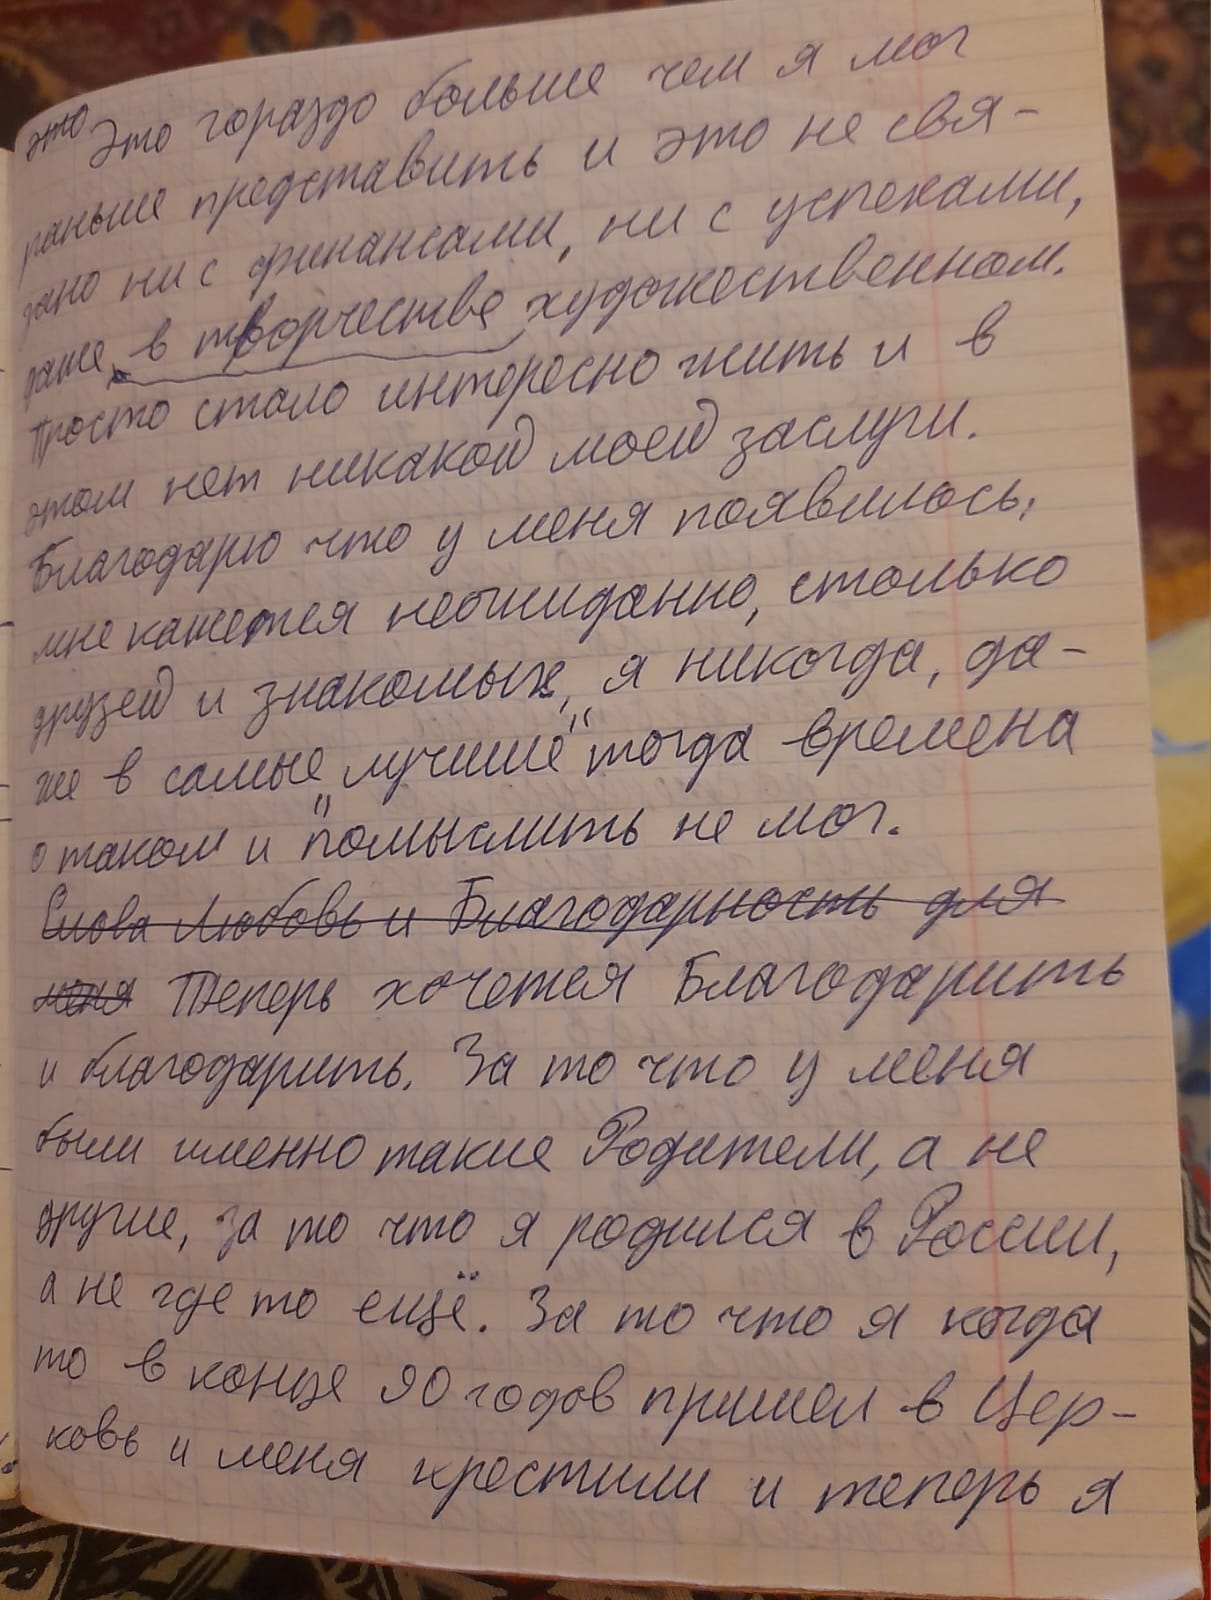 это Это гораздо больше чем я мог
раньше представить и это не свя-
зано ни с финансами, ни с успехами,
даже в творчестве художественном.
Просто стало интересно жить и в
этом нет никакой моей заслуги.
Благодарю что у меня появилось,
мне кажется неожиданно, столько
друзей и знакомых, я никогда, да-
же в самые "лучшие" тогда времена
о таком и "помыслить не мог.
Слова Любовь и Благодарность для
меня Теперь хочется Благодарить
и благодарить. За то что у меня
были именно такие Родители, а не
другие, за то что я родился в России,
а не где то ещё. За то что я когда
то в конце 90 годов пришел в Цер-
ковь и меня крестили и теперь я